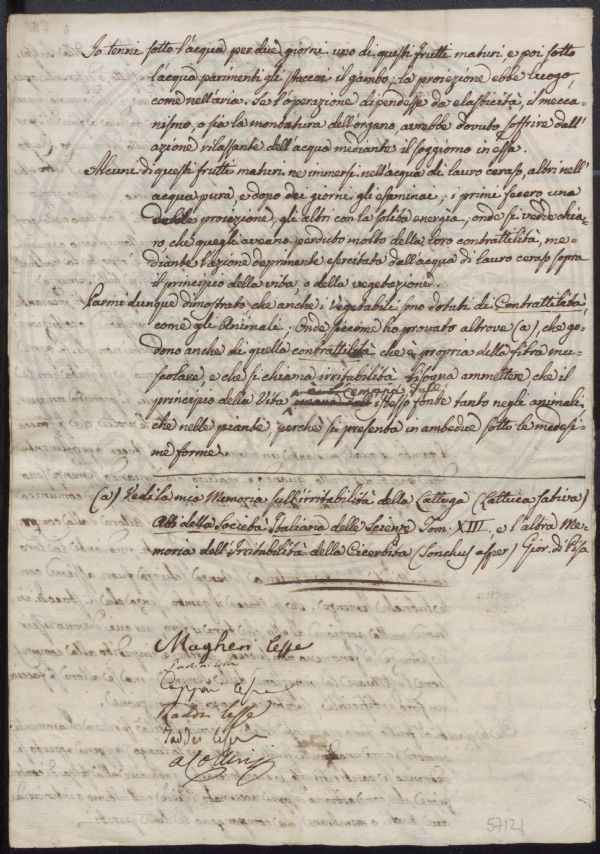 Io tenni sotto l'acqua per due giorni uno di questi frutti maturi, e poi sotto
l'acqua parimenti gli staccai il gambo; la proiezione ebbe luogo
come nell'aria. Se l'operazione dipendesse da elasticità, il mecca-
nismo, o sia la montatura dell'organo avrebbe dovuto soffrire dall'
azione rilassante dell'acqua mediante il soggiorno in essa.
Alcuni di questi frutti maturi ne immersi nell'acqua di lauro ceraso, altri nell'
acqua pura, e dopo dei giorni gli esaminai; i primi fecero una
debile proiezione, gli altri con la solita energia, onde si vedde chia-
ro che quegli aveano perduto molto della loro contrattilità, me-
diante l'azione deprimente esercitata dall'acqua di lauro ceraso sopra
il principio della vita, o della vegetazione.
Parmi dunque dimostrato che anche i Vegetabili sono dotati di Contrattilità
come gli Animali; Onde siccome ho provato altrove (a), che go-
dono anche di quella contrattilità che è propria della fibra mu-
scolare, e che si chiama irritabilità bisogna ammettere che il
principio della Vita è istesso fonte tanto negli animali,
che nelle piante, perchè si presenta in ambedue sotto le medesi-
me forme.
(a) Vedi la mia Memoria sull'irritabilità della Lattuga (Lattuca sativa)
Atti della Società Italiana delle Scienze Tom. XIII, e l'altra Me-
moria dell'Irritabilità della Cicerbita (Sonchus asper) Gior. di Pisa
Magheri lesse
lesse
Raddi lesse
Taddei lesse
5712